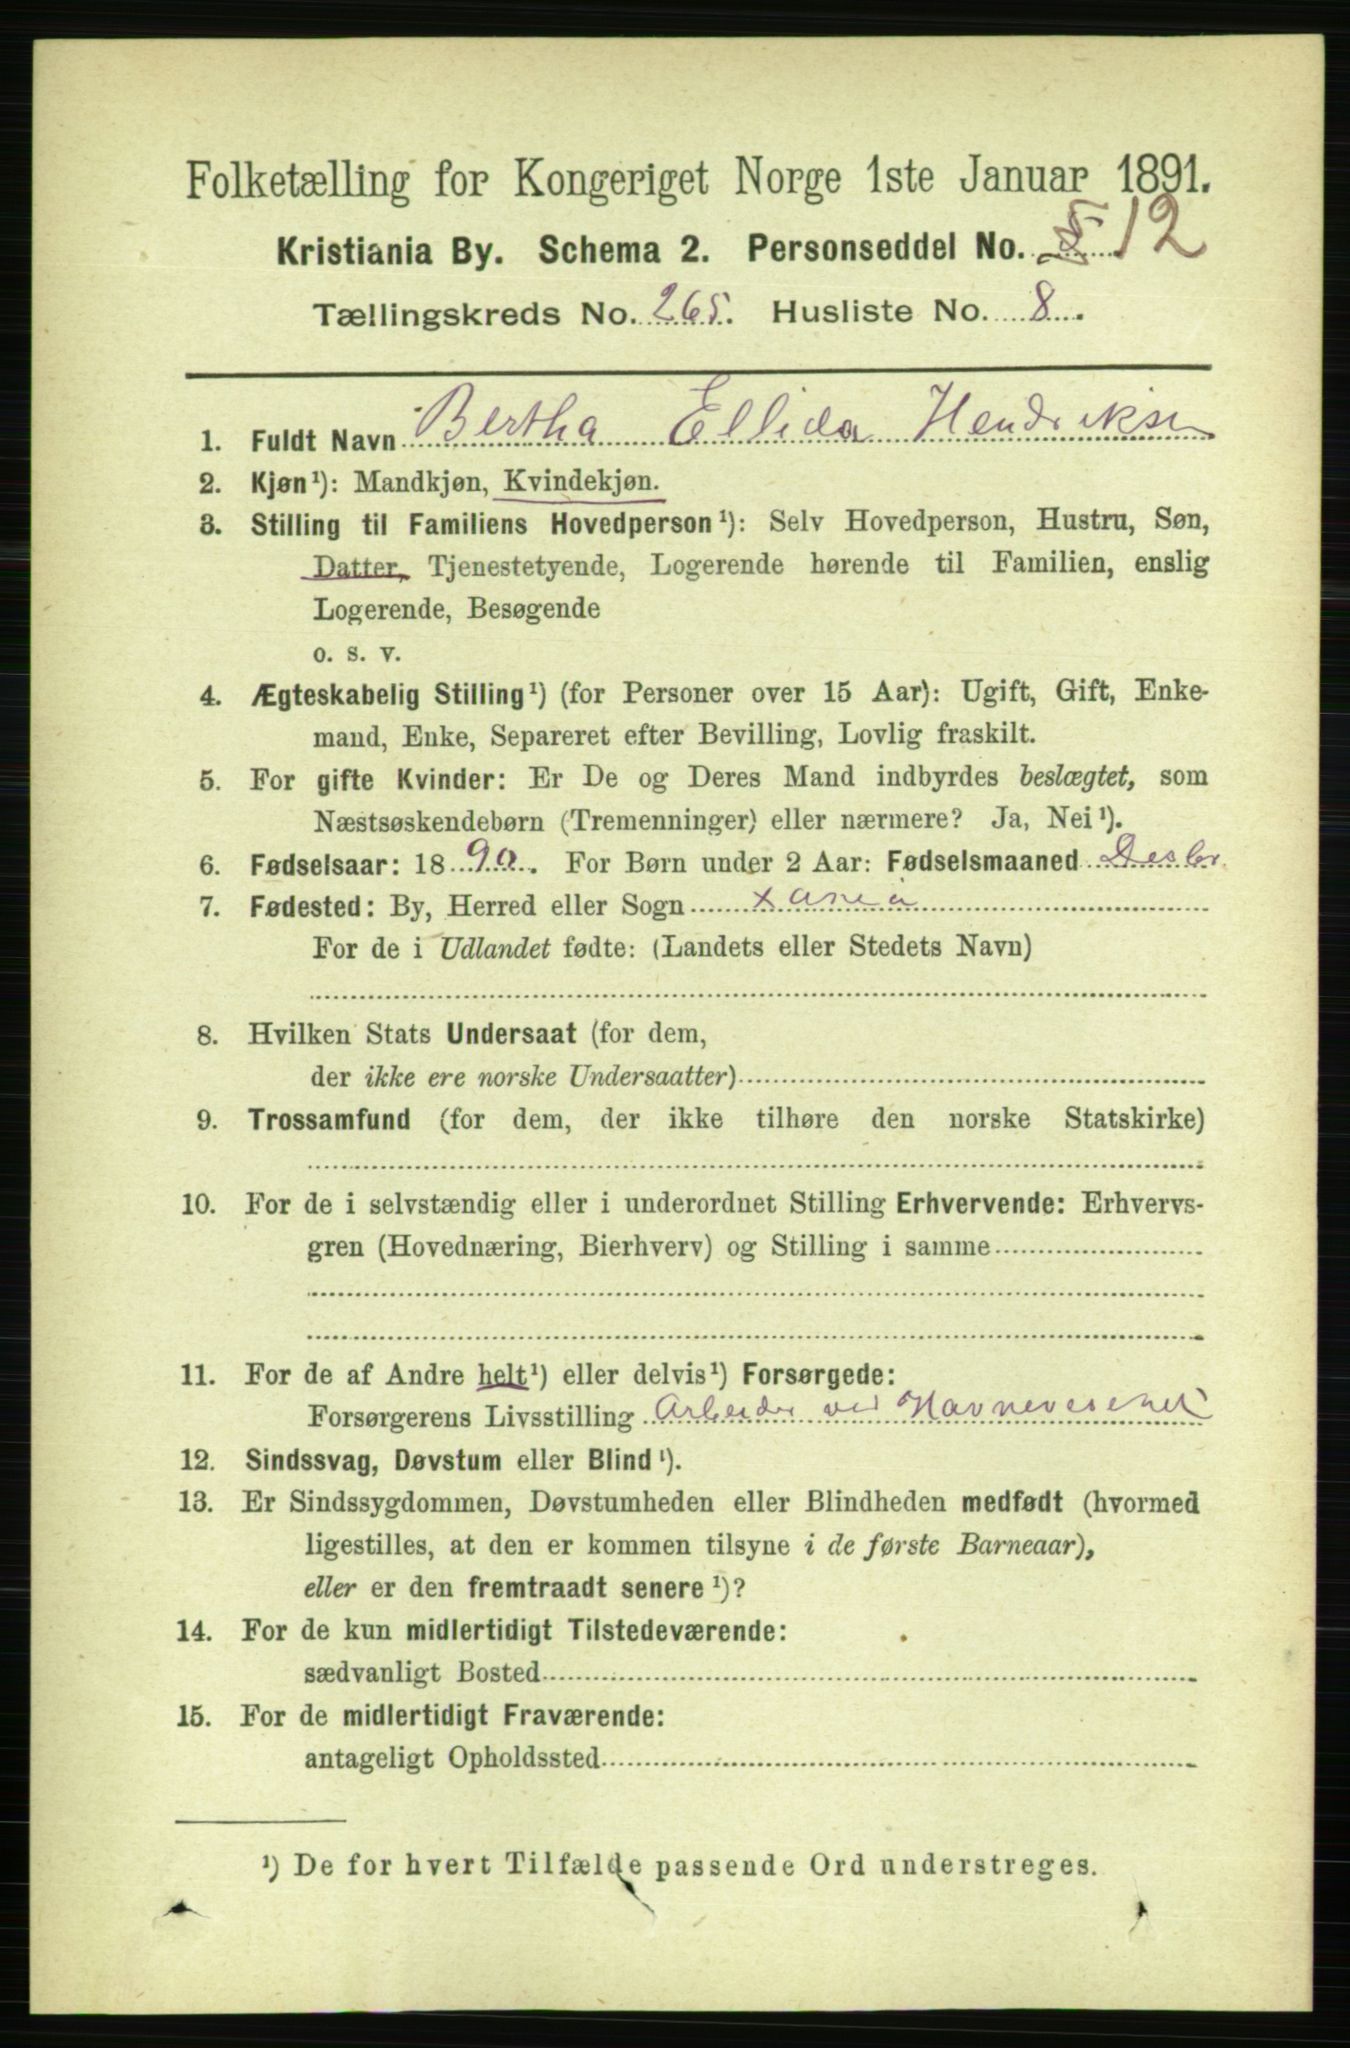 Folketælling for Kongeriget Norge 1ste Januar 1891.
Kristiania By. Schema 2. Personseddel No. 12
Tællingskreds No. 265. Husliste No. 8.
1. Fuldt Navn Bertha Ellida Hendriksen
2. Kjøn¹): Mandkjøn, Kvindekjøn.
3. Stilling til Familiens Hovedperson¹): Selv Hovedperson, Hustru, Søn,
Datter, Tjenestetyende, Logerende hørende til Familien, enslig
Logerende, Besøgende
o. s. v.
4. Ægteskabelig Stilling¹) (for Personer over 15 Aar): Ugift, Gift, Enke-
mand, Enke, Separeret efter Bevilling, Lovlig fraskilt.
5. For gifte Kvinder: Er De og Deres Mand indbyrdes beslægtet, som
Næstsøskendebørn (Tremenninger) eller nærmere? Ja, Nei¹).
6. Fødselsaar: 1890. For Børn under 2 Aar: Fødselsmaaned Desbr.
7. Fødested: By, Herred eller Sogn Xania
For de i Udlandet fødte: (Landets eller Stedets Navn)
8. Hvilken Stats Undersaat (for dem,
der ikke ere norske Undersaatter)
9. Trossamfund (for dem, der ikke tilhøre den norske Statskirke)
10. For de i selvstændig eller i underordnet Stilling Erhvervende: Erhvervs-
gren (Hovednæring, Bierhverv) og Stilling i samme
11. For de af Andre helt¹) eller delvis¹) Forsørgede:
Forsørgerens Livsstilling Arbeider ved Havnevesenet
12. Sindssvag, Døvstum eller Blind¹).
13. Er Sindssygdommen, Døvstumheden eller Blindheden medfødt (hvormed
ligestilles, at den er kommen tilsyne i de første Barneaar),
eller er den fremtraadt senere¹)?
14. For de kun midlertidigt Tilstedeværende:
sædvanligt Bosted
15. For de midlertidigt Fraværende:
antageligt Opholdssted
¹) De for hvert Tilfælde passende Ord understreges.